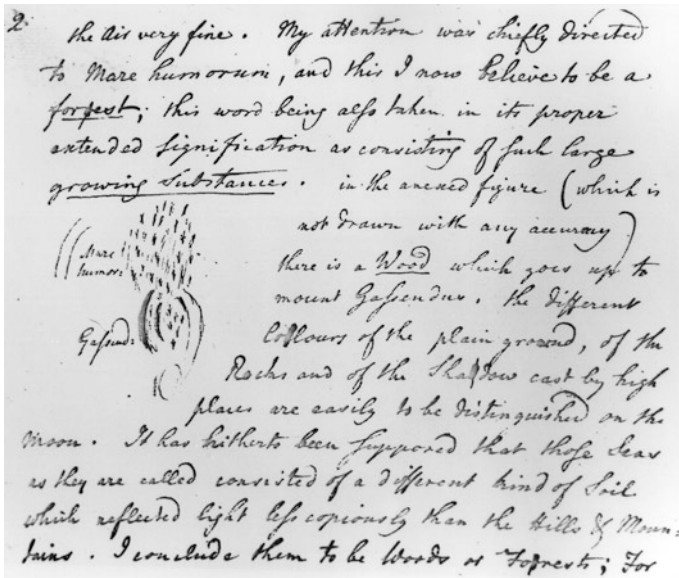 2
the air very fine. My attention was chiefly directed
to Mare humorum, and this I now believe to be a
forrest; this word being also taken in its proper
extended signification as consisting of such large
growing substances. in the anexed figure (which is
not drawn with any accuracy)
there is a Wood which goes up to
mount Gassendus. the different
Collours of the plain ground, of the
Rocks and of the Shaddow cast by high
places are easily to be distinguished on the
Moon. It has hitherto been supposed that those Seas
as they are called consisted of a different kind of Soil
which reflected light less copiously than the Hills & Moun=
tains. I conclude them to be Woods or Forrests; For
Mare
humor:
Gassend: